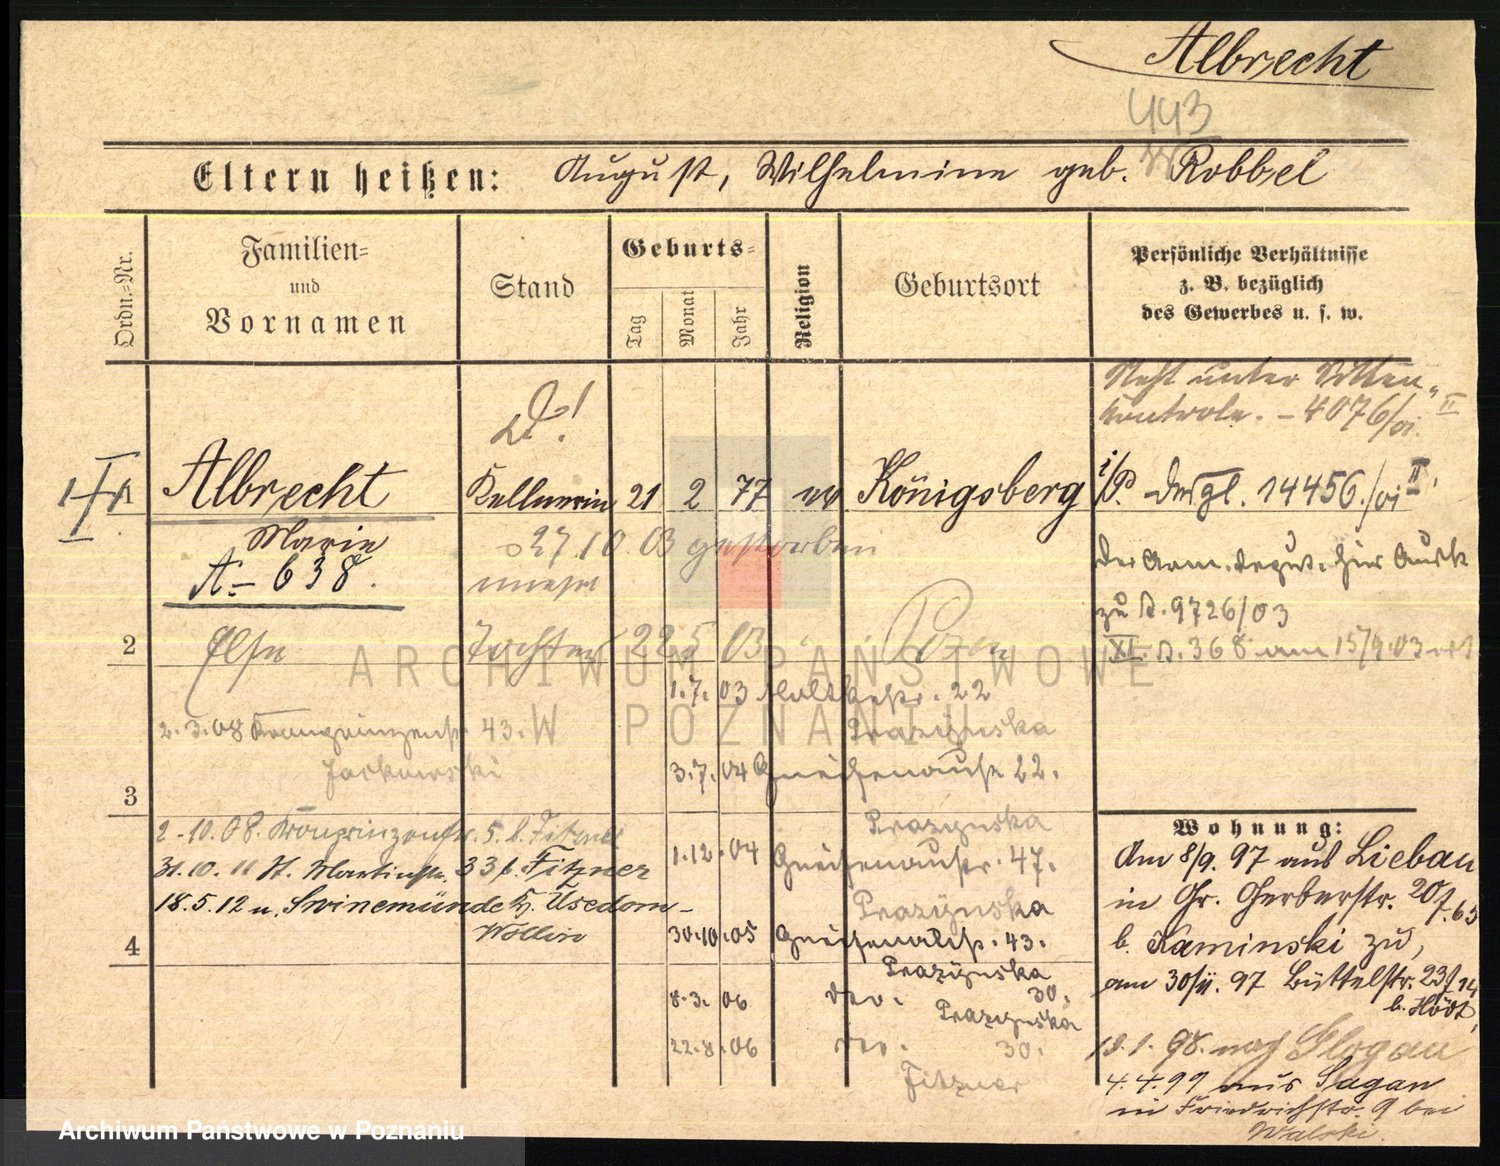 Albrecht
443
Eltern heißen: August, Wilhelmine geb. Robbel
Ordn.-Nr.
Familien-
und
Vornamen
Stand
Geburts-
Tag
Monat
Jahr
Religion
Geburtsort
Persönliche Verhältnisse
z. B. bezüglich
des Gewerbes u. s. w.
Steht unter Sitten-
kontrole. – 4076/oi II
1 Albrecht Kellnerin 21 2 77 ev Königsberg
Marie
A – 638.
27.10.03 gestorben
i/P. Vergl. 14456./oi II
Der Arm. Deput. hier Ausk
zu A. 9726/03
XI. A. 368 am 15/9.03
2 Else Tochter 22 5 03 Posen
1.7.03 Moltkestr. 22
Prazynska
2.3.08 Kronprinzenstr 43.
Jackowski
3.7.04 Gneisenaustr 22.
3
Prazynska
2.10.08. Kronprinzenstr. 5. b. Fitzner
1.12.04 Gneisenaustr. 47.
31.10.11 St. Martinstr. 33 b. Fitzner
Prazynska
18.5.12 n. Swinemünde Kr. Usedom-
Wollin
4
30.10.05 Gneisenaustr. 43.
Prazynska
8.3.06 dto. 30.
Prazynska
22.8.06 dto. 30.
Fitzner
Wohnung:
Am 8/9. 97 aus Liebau
in Gr. Gerberstr. 20
b. Kaminski zu,
am 30/11. 97 Büttelstr. 23
b. Hödt,
19.1.98. nach Glogau
4.4.99 aus Sagan
in Friedrichstr. 9 bei
Walski.
ARCHIWUM PAŃSTWOWE
W POZNANIU
Archiwum Państwowe w Poznaniu